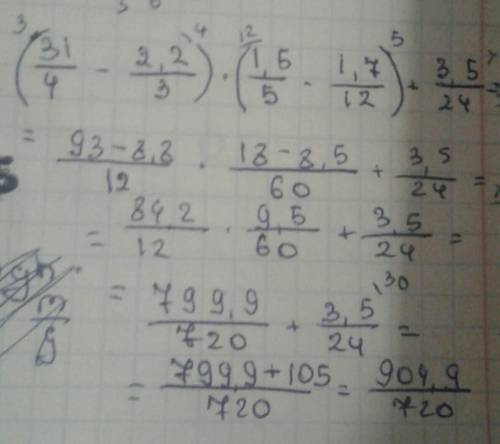 (31/4 ³ - 2,2/3 ⁴) · (1,5/5 ¹² - 1,7/12 ⁵) + 3,5/24
= 93-8,8/12 · 18-8,5/60 + 3,5/24 =
= 84,2/12 · 9,5/60 + 3,5/24 =
= 799,9/720 + 3,5/24 ³⁰ =
= 799,9+105/720 = 904,9/720